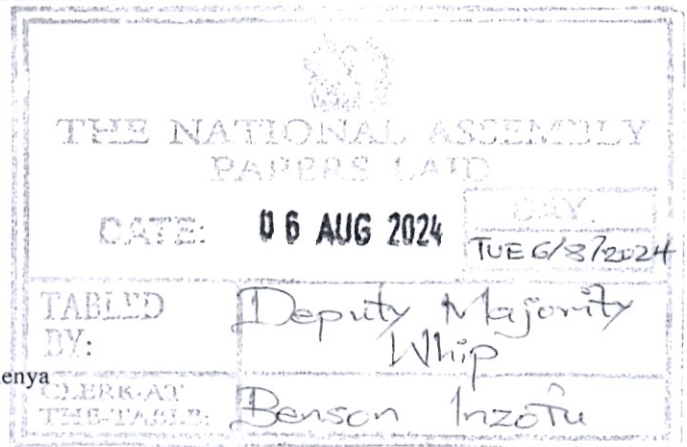 THE NATIONAL ASSEMBLY
PAPERS LAID
DATE: 06 AUG 2024
DAY.
TUE 6/8/2024
TABLED
BY:
Deputy Majority
Whip
enya
CLERK-AT
THE-TABLE:
Benson Inzofu